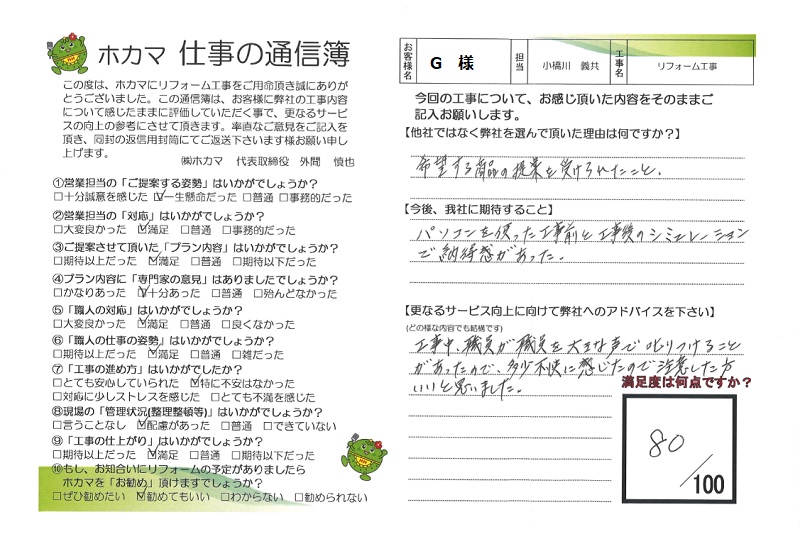 ホカマ 仕事の通信簿
この度は、ホカマにリフォーム工事をご用命頂き誠にありが
とうございました。この通信簿は、お客様に弊社の工事内容
について感じたままに評価していただく事で、更なるサービ
スの向上の参考にさせて頂きます。率直なご意見をご記入を
頂き、同封の返信用封筒にてご返送下さいます様お願い申し
上げます。
㈱ホカマ 代表取締役 外間 慎也
①営業担当の「ご提案する姿勢」はいかがでしょうか?
□十分誠意を感じた ☑一生懸命だった □普通 □事務的だった
②営業担当の「対応」はいかがでしょうか?
□大変良かった ☑満足 □普通 □事務的だった
③ご提案させて頂いた「プラン内容」はいかがでしょうか?
□期待以上だった ☑満足 □普通 □期待以下だった
④プラン内容に「専門家の意見」はありましたでしょうか?
□かなりあった ☑十分あった □普通 □殆んどなかった
⑤「職人の対応」はいかがでしょうか?
□大変良かった ☑満足 □普通 □良くなかった
⑥「職人の仕事の姿勢」はいかがでしょうか?
□期待以上だった ☑満足 □普通 □雑だった
⑦「工事の進め方」はいかがでしたか?
□とても安心していられた ☑特に不安はなかった
□対応に少しストレスを感じた □とても不満を感じた
⑧現場の「管理状況(整理整頓等)」はいかがでしょうか?
□言うことなし ☑配慮があった □普通 □できていない
⑨「工事の仕上がり」はいかがでしょうか?
□期待以上だった ☑満足 □普通 □期待以下だった
⑩もし、お知合いにリフォームの予定がありましたら
ホカマを「お勧め」頂けますでしょうか?
□ぜひ勧めたい ☑勧めてもいい □わからない □勧められない
お客様名 G 様 担当 小橋川 義共 工事名 リフォーム工事
今回の工事について、お感じ頂いた内容をそのままご
記入お願いします。
【他社ではなく弊社を選んで頂いた理由は何ですか?】
希望する商品の提案を受けられたこと。
【今後、我社に期待すること】
パソコンを使った工事前と工事後のシミュレーション
で納得感があった。
【更なるサービス向上に向けて弊社へのアドバイスを下さい】
(どの様な内容でも結構です)
工事中、職員が職員を大きな声で叱りつけること
があったので、多少不快に感じたので注意した方
いいと思いました。
満足度は何点ですか?
80
/100